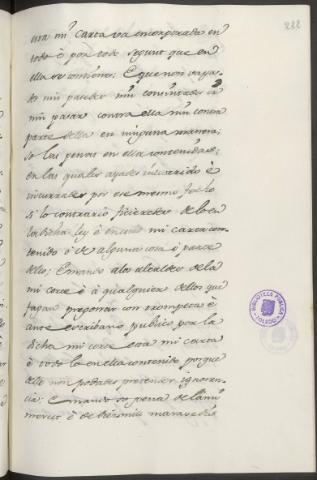 222
esta mi carta va encorporada en
todo é por todo segunt que en
ella se contiene: E que non vaya-
des nin pasedes nin consintades ir
nin pasar contra ella nin contra
parte della en ninguna manera;
so las penas en ella contenidas:
en las quales ayades incurrido é
incurrades por ese mesmo fecho
si lo contrario ficieredes de lo en
la dicha ley é en esta mi carta con-
tenido ó de alguna cosa ó parte
dello; E mando a los alcaldes de la
mi corte é á qualquier dellos que
fagan pregonar con trompeta é
ante escribano publico por la
dicha mi corte esta mi carta
é todo lo en ella contenido porque
dello non podades pretender ignoran-
cia: E mando so pena de la mi
merced é de diezmill maravedis
BIBLIOTECA PUBLICA
TOLEDO